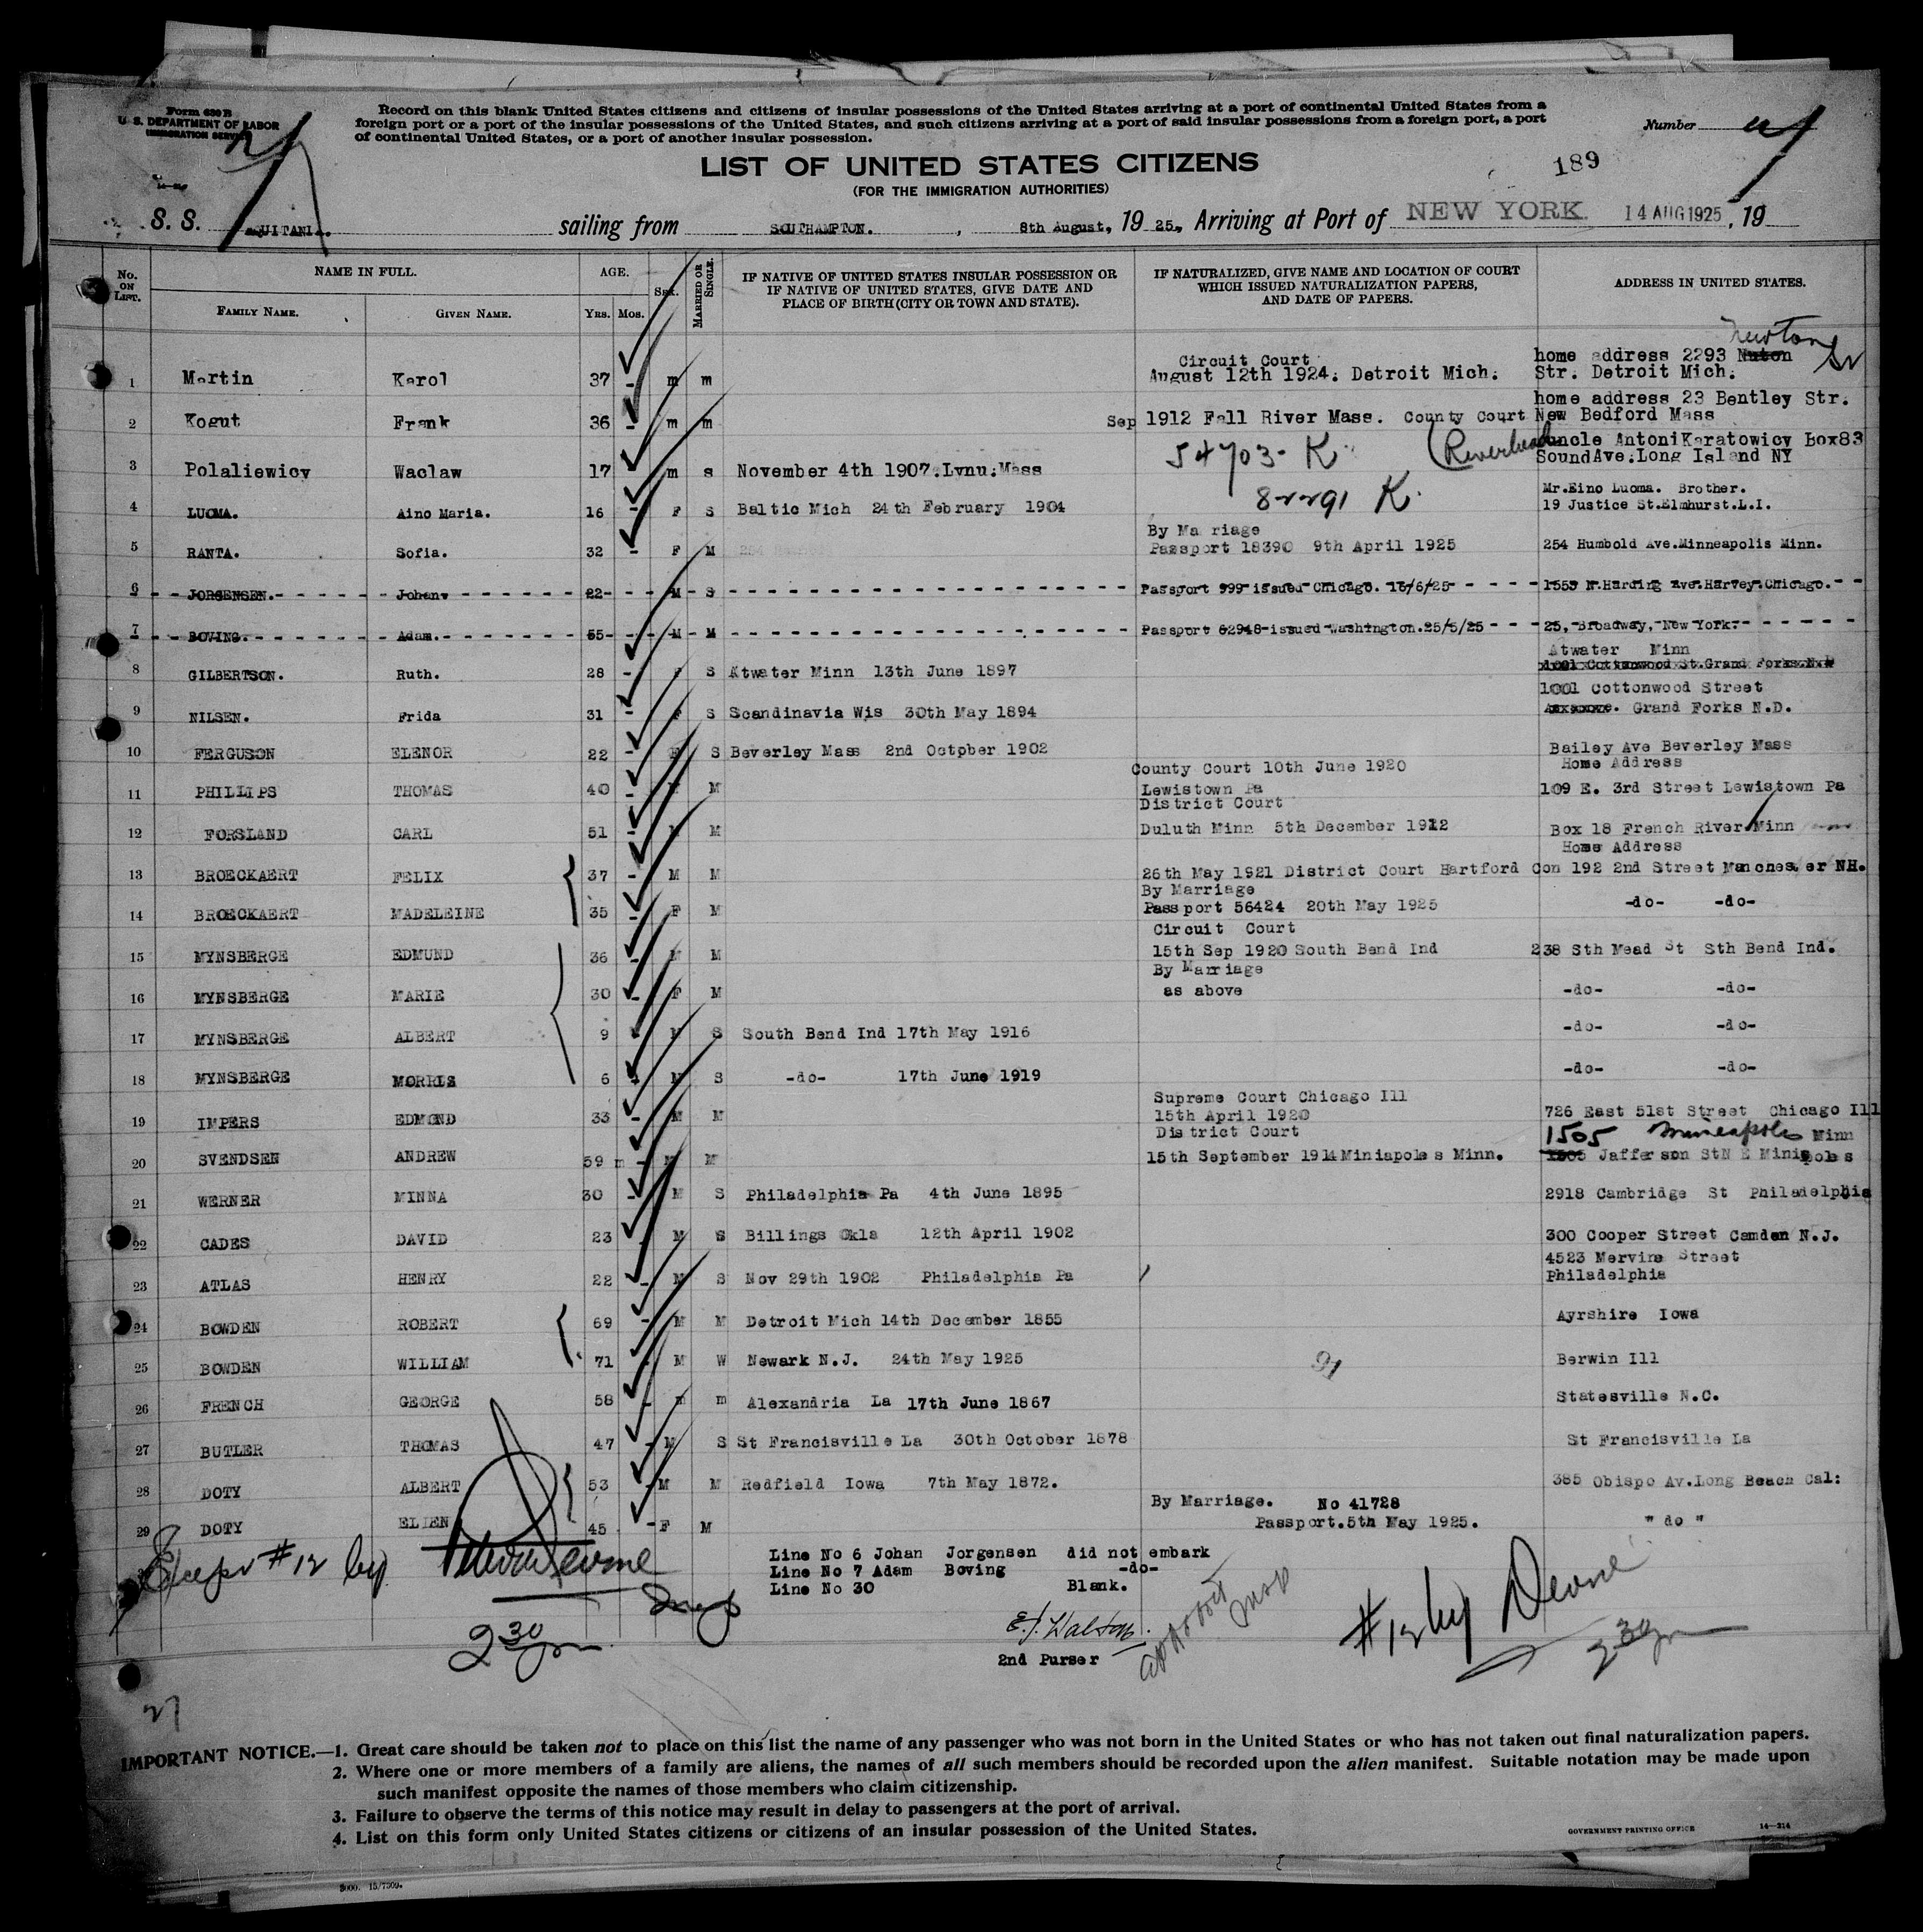 Form 630 B
U. S. DEPARTMENT OF LABOR
IMMIGRATION SERVICE
Record on this blank United States citizens and citizens of insular possessions of the United States arriving at a port of continental United States from a
foreign port or a port of the insular possessions of the United States, and such citizens arriving at a port of said insular possessions from a foreign port, a port
of continental United States, or a port of another insular possession.
Number
LIST OF UNITED STATES CITIZENS
189
(FOR THE IMMIGRATION AUTHORITIES)
S. S. AQUITANIA. sailing from SOUTHAMPTON. , 8th August, 19 25. Arriving at Port of NEW YORK. 14 AUG 1925 , 19
No. ON LIST. NAME IN FULL. AGE. SEX. MARRIED OR SINGLE. IF NATIVE OF UNITED STATES INSULAR POSSESSION OR IF NATIVE OF UNITED STATES, GIVE DATE AND PLACE OF BIRTH (CITY OR TOWN AND STATE). IF NATURALIZED, GIVE NAME AND LOCATION OF COURT WHICH ISSUED NATURALIZATION PAPERS, AND DATE OF PAPERS. ADDRESS IN UNITED STATES.
FAMILY NAME. GIVEN NAME. YRS. MOS.
Newton
Circuit Court home address 2293 Nuton
1 Martin Karol 37 - m m August 12th 1924. Detroit Mich. Str. Detroit Mich.
home address 23 Bentley Str.
2 Kogut Frank 36 - m m Sep 1912 Fall River Mass. County Court New Bedford Mass
54703- K (Riverhead uncle Antoni Karatowicy Box83
3 Polaliewicy Waclaw 17 m s November 4th 1907.Lynu.Mass Sound Ave.Long Island NY
82291 K. Mr.Eino Luoma. Brother.
4 LUOMA. Aino Maria. 16 - F S Baltic Mich 24th February 1904 19 Justice St.Elmhurst.L.I.
By Ma riage
5 RANTA. Sofia. 32 - F M Passport 18390 9th April 1925 254 Humbold Ave.Minneapolis Minn.
6 JORGENSEN. Johan. 22 M S Passport 999 issued Chicago. 16/6/25 1553 N.Harding Ave.Harvey.Chicago.
7 BOVING. Adam. 55 M M Passport 62948 issued Washington.25/5/25 25, Broadway, New York.
Atwater Minn
8 GILBERTSON. Ruth. 28 - F S Atwater Minn 13th June 1897 1001 Cottonwood St.Grand Forks.N.D
1001 Cottonwood Street
9 NILSEN. Frida 31 - F S Scandinavia Wis 30th May 1894 Grand Forks N.D.
10 FERGUSON ELENOR 22 - F S Beverley Mass 2nd Octpber 1902 Bailey Ave Beverley Mass
County Court 10th June 1920 Home Address
11 PHILLIPS THOMAS 40 - M Lewistown Pa 109 E. 3rd Street Lewistown Pa
District Court
12 FORSLAND CARL 51 - M M Duluth Minn 5th December 1912 Box 18 French River Minn
Home Address
13 BROECKAERT FELIX 37 - M M 26th May 1921 District Court Hartford Con 192 2nd Street Manchester NH.
By Marriage
14 BROECKAERT MADELEINE 35 - F M Passport 56424 20th May 1925 -do- -do-
Circuit Court
15 MYNSBERGE EDMUND 36 - M M 15th Sep 1920 South Bend Ind 238 Sth Mead St Sth Bend Ind.
By Marriage
16 MYNSBERGE MARIE 30 - F M as above -do- -do-
17 MYNSBERGE ALBERT 9 M S South Bend Ind 17th May 1916 -do- -do-
18 MYNSBERGE MORRIS 6 M S -do- 17th June 1919 -do- -do-
Supreme Court Chicago Ill
19 IMPERS EDMOND 33 - M M 15th April 1920 726 East 51st Street Chicago Ill
District Court 1505 Minneapolis Minn
20 SVENDSEN ANDREW 59 m - M M 15th September 1914 Miniapoles Minn. 1505 Jafferson StN E Miniapoles
21 WERNER MINNA 30 - M S Philadelphia Pa 4th June 1895 2918 Cambridge St Philadelphia
22 CADES DAVID 23 M S Billings Okla 12th April 1902 300 Cooper Street Camden N.J.
4523 Mervine Street
23 ATLAS HENRY 22 - M S Nov 29th 1902 Philadelphia Pa Philadelphia
24 BOWDEN ROBERT 69 - M M Detroit Mich 14th December 1855 Ayrshire Iowa
25 BOWDEN WILLIAM 71 - M W Newark N.J. 24th May 1925 Berwin Ill
26 FRENCH GEORGE 58 - m m Alexandria La 17th June 1867 Statesville N.C.
27 BUTLER THOMAS 47 - M S St Francisville La 30th October 1878 St Francisville La
28 DOTY ALBERT 53 - M M Redfield Iowa 7th May 1872. 385 Obispo Av.Long Beach Cal:
By Marriage. No 41728
29 DOTY ELIEN 45 - F M Passport.5th May 1925. " do "
Except #12 by
Line No 6 Johan Jorgensen did not embark
Line No 7 Adam Boving -do-
Line No 30 Blank.
Insp
2 30 pm
E.J. Walton.
2nd Purser
#12 by Devine
2 30 pm
27
IMPORTANT NOTICE.—1. Great care should be taken not to place on this list the name of any passenger who was not born in the United States or who has not taken out final naturalization papers.
2. Where one or more members of a family are aliens, the names of all such members should be recorded upon the alien manifest. Suitable notation may be made upon
such manifest opposite the names of those members who claim citizenship.
3. Failure to observe the terms of this notice may result in delay to passengers at the port of arrival.
4. List on this form only United States citizens or citizens of an insular possession of the United States.
GOVERNMENT PRINTING OFFICE 14—214
3000. 15/7309.